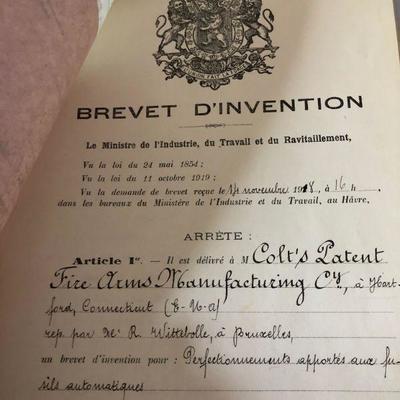 L'UNION FAIT LA FORCE
BREVET D'INVENTION
Le Ministre de l'Industrie, du Travail et du Ravitaillement,
Vu la loi du 24 mai 1854 ;
Vu la loi du 11 octobre 1919 ;
Vu la demande de brevet reçue le 14 novembre 1918, à 16 h.
dans les bureaux du Ministère de l'Industrie et du Travail, au Hâvre,
ARRÊTE :
Article 1er. — Il est délivré à M Colt's Patent
Fire Arms Manufacturing Cy., à Hart-
ford, Connecticut (E-U-a)
rep. par Mr R. Wittebolle, à Bruxelles,
un brevet d'invention pour : Perfectionnements apportés aux fu-
sils automatiques